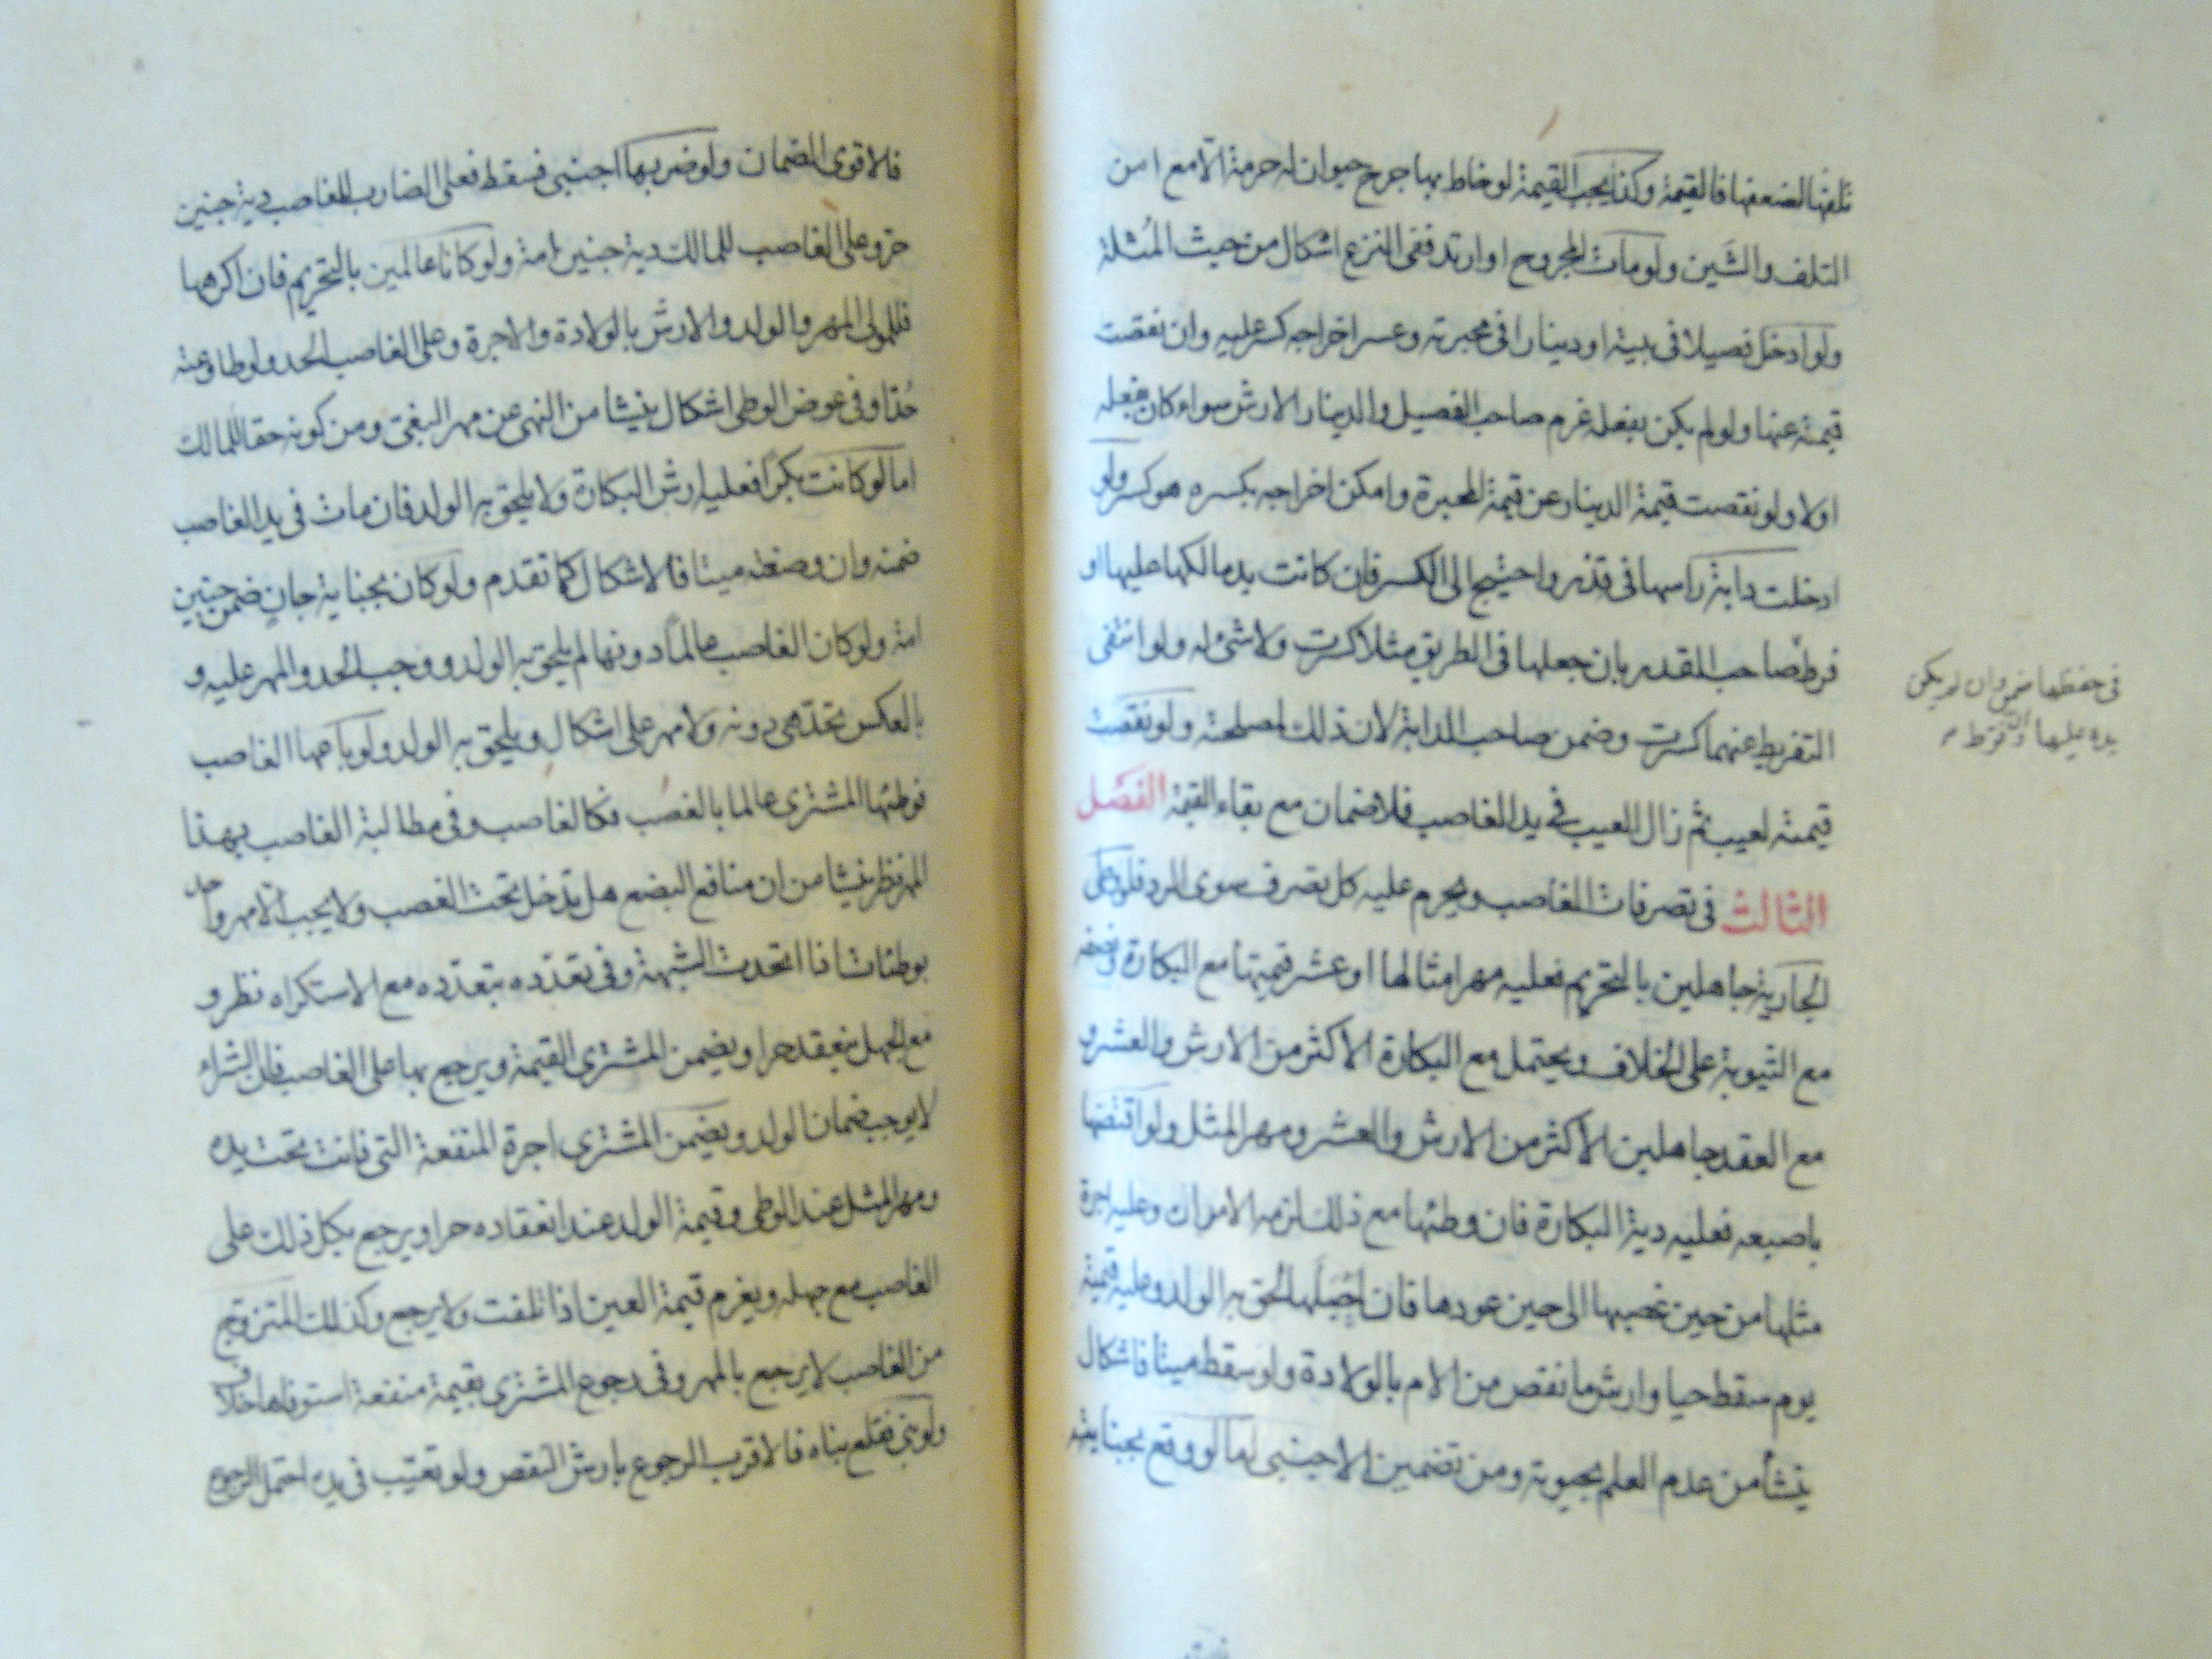 تلفها لضعفها فالقيمة وكذا يجب القيمة لو خاط بها جرح حيوان له حرمة الا مع امن
التلف والشين ولو مات المجروح او ارتد ففى النزع اشكال من حيث المُثلة
ولو ادخل فصيلا فى بيته او دينارا فى محبرته وعسر اخراجه كسر عليه وان نقصت
قيمته عنها ولو لم يكن بفعله غرم صاحب الفصيل والدينار الارش سواء كان بفعله
اولا ولو نقصت قيمة الدينار عن قيمة المحبرة وامكن اخراجه بكسره هو كسر ولو
ادخلت دابة راسها فى قدر واحتيج الى الكسر فان كانت يد مالكها عليها او
فرط صاحب القدر بان جعلها فى الطريق مثلا كسرت ولا شئ له ولو انتفى
التفريط عنهما كسرت وضمن صاحب الدابة لان ذلك لمصلحته ولو نقصت
قيمته لعيب ثم زال العيب فى يد الغاصب فلا ضمان مع بقاء القيمة الفصل
الثالث فى تصرفات الغاصب ويحرم عليه كل تصرف سوى الرد فلو وطى
الجارية جاهلين بالتحريم فعليه مهر امثالها او عشر قيمتها مع البكارة ونصفه
مع الثيوبة على الخلاف ويحتمل مع البكارة الاكثر من الارش والعشر و
مع العقد جاهلين الاكثر من الارش والعشر ومهر المثل ولو اقتضها
باصبعه فعليه دية البكارة فان وطئها مع ذلك لزمه الامران وعليه اجرة
مثلها من حين غصبها الى حين عودها فان احبلها لحق به الولد وعليه قيمته
يوم سقط حيا وارش ما نقص من الام بالولادة ولو سقط ميتا فاشكال
ينشأ من عدم العلم بحيوته ومن تضمين الاجنبى اما لو وقع بجنايته
فى حفظها ضمن وان لم يكن
يده عليها
فالاقوى الضمان ولو ضربها اجنبى فسقط فعلى الضارب للغاصب دية جنين
حر وعلى الغاصب للمالك دية جنين امة ولو كانا عالمين بالتحريم فان اكرهها
فللمولى المهر والولد والارش بالولادة والاجرة وعلى الغاصب الحد ولو طاوعته
حُدّا وفى عوض الوطى اشكال ينشا من النهى عن مهر البغى ومن كونه حقا للمالك
اما لو كانت بكرًا فعليه ارش البكارة ولا يلحق به الولد فان مات فى يد الغاصب
ضمنه وان وضعته ميتا فالاشكال كما تقدم ولو كان بجناية جانٍ ضمن جنين
امة ولو كان الغاصب عالماً دونها لم يلحق به الولد ووجب الحد والمهر عليه و
بالعكس تحدّ هى دونه ولا مهر على اشكال ويلحق به الولد ولو باعها الغاصب
فوطئها المشترى عالما بالغصب فكالغاصب وفى مطالبة الغاصب بهذا
المهر نظر ينشا من ان منافع البضع هل تدخل تحت الغصب ولا يجب الا مهر واحد
بوطئات اذا اتحدت الشبهة وفى تعدّده بتعدّده مع الاستكراه نظر و
مع الجهل ينعقد حرا ويضمن المشترى القيمة ويرجع بها على الغاصب فان الشراء
لا يوجب ضمان الولد ويضمن المشترى اجرة المنفعة التى فاتت تحت يده
ومهر المثل عند الوطى وقيمة الولد عند انعقاده حرا ويرجع بكل ذلك على
الغاصب مع جهله ويغرم قيمة العين اذا تلفت ولا يرجع وكذلك المتزوج
من الغاصب لا يرجع بالمهر وفى رجوع المشترى بقيمة منفعة استوفاها خلاف
ولو بنى فقلع بناه فالاقرب الرجوع بارش النقص ولو تعيّب فى يده احتمل الرجوع